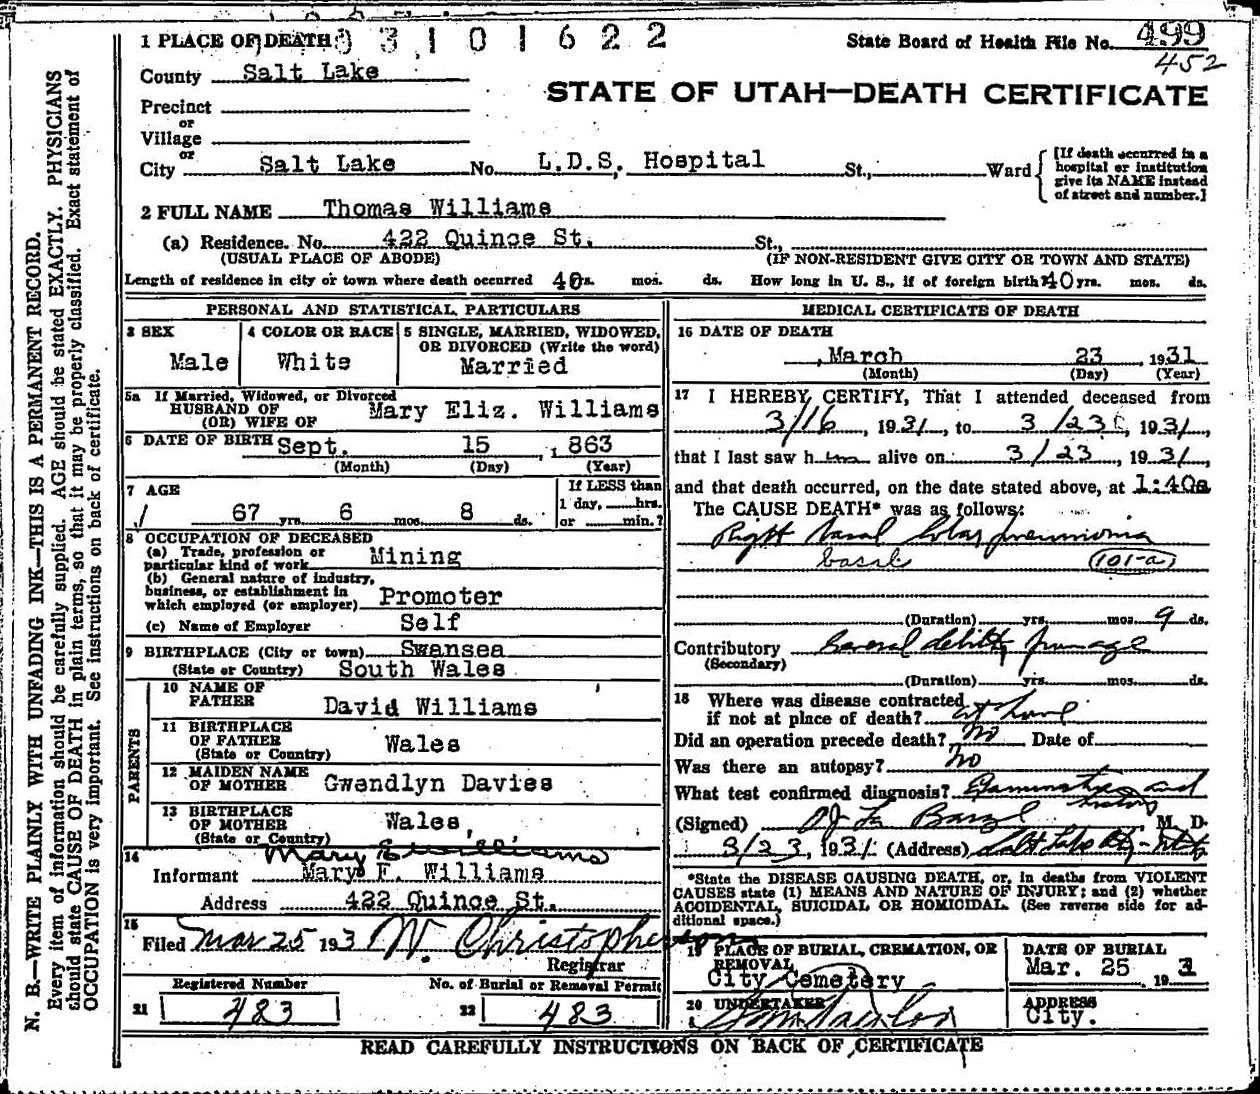 1 PLACE OF DEATH 3 1 0 1 6 2 2 State Board of Health File No. 499
452
County Salt Lake
STATE OF UTAH—DEATH CERTIFICATE
Precinct
or
Village
or
City Salt Lake No. L.D.S. Hospital St., Ward
[If death occurred in a
hospital or institution
give its NAME instead
of street and number.]
2 FULL NAME Thomas Williams
(a) Residence. No. 422 Quince St. St.,
(USUAL PLACE OF ABODE) (IF NON-RESIDENT GIVE CITY OR TOWN AND STATE)
Length of residence in city or town where death occurred 40 mos. ds. How long in U. S., if of foreign birth 40 yrs. mos. ds.
PERSONAL AND STATISTICAL PARTICULARS
3 SEX
Male
4 COLOR OR RACE
White
5 SINGLE, MARRIED, WIDOWED,
OR DIVORCED (Write the word)
Married
5a If Married, Widowed, or Divorced
HUSBAND OF
(OR) WIFE OF Mary Eliz. Williams
6 DATE OF BIRTH Sept. 15 , 863
(Month) (Day) (Year)
7 AGE
67 yrs. 6 mos. 8 ds.
If LESS than
1 day, hrs.
or min.?
8 OCCUPATION OF DECEASED
(a) Trade, profession or
particular kind of work Mining
(b) General nature of industry,
business, or establishment in
which employed (or employer) Promoter
(c) Name of Employer Self
9 BIRTHPLACE (City or town) Swansea
(State or Country) South Wales
PARENTS
10 NAME OF
FATHER David Williams
11 BIRTHPLACE
OF FATHER
(State or Country) Wales
12 MAIDEN NAME
OF MOTHER Gwendlyn Davies
13 BIRTHPLACE
OF MOTHER
(State or Country) Wales,
14 Mary E Williams
Informant Mary F. Williams
Address 422 Quince St.
15
Filed Mar 25 193 W. Christopherson
Registrar
Registered Number
21 483
No. of Burial or Removal Permit
22 483
MEDICAL CERTIFICATE OF DEATH
16 DATE OF DEATH
March 23, 1931
(Month) (Day) (Year)
17 I HEREBY CERTIFY, That I attended deceased from
3/16, 1931, to 3/23, 1931,
that I last saw him alive on 3/23, 1931,
and that death occurred, on the date stated above, at 1:40a
The CAUSE DEATH* was as follows:
Right basal lobar pneumonia
basal 101-a
(Duration) yrs. mos. 9 ds.
Contributory General debility
(Secondary)
(Duration) yrs. mos. ds.
18 Where was disease contracted
if not at place of death? at home
Did an operation precede death? no Date of
Was there an autopsy? no
What test confirmed diagnosis? Examination and
history
(Signed) M. D.
3/23, 1931 (Address) Salt Lake City - Utah
*State the DISEASE CAUSING DEATH, or, in deaths from VIOLENT
CAUSES state (1) MEANS AND NATURE OF INJURY; and (2) whether
ACCIDENTAL, SUICIDAL OR HOMICIDAL. (See reverse side for ad-
ditional space.)
19 PLACE OF BURIAL, CREMATION, OR
REMOVAL
City Cemetery
DATE OF BURIAL
Mar. 25 19 31
20 UNDERTAKER
ADDRESS
City.
READ CAREFULLY INSTRUCTIONS ON BACK OF CERTIFICATE
N. B.—WRITE PLAINLY WITH UNFADING INK—THIS IS A PERMANENT RECORD.
Every item of information should be carefully supplied. AGE should be stated EXACTLY. PHYSICIANS
should state CAUSE OF DEATH in plain terms, so that it may be properly classified. Exact statement of
OCCUPATION is very important. See instructions on back of certificate.